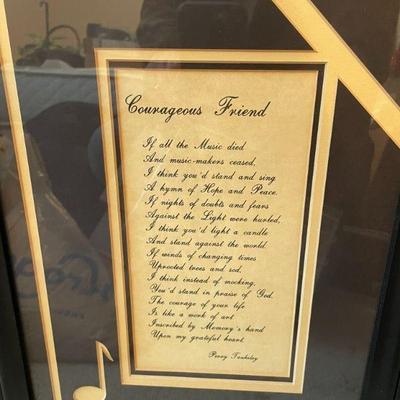 Courageous Friend
If all the Music died
And music-makers ceased,
I think you'd stand and sing
A hymn of Hope and Peace.
If nights of doubts and fears
Against the Light were hurled,
I think you'd light a candle
And stand against the world.
If winds of changing times
Uprooted trees and sod,
I think instead of mocking,
You'd stand in praise of God.
The courage of your life
Is like a work of art
Inscribed by Memory's hand
Upon my grateful heart.
Perry Tanksley